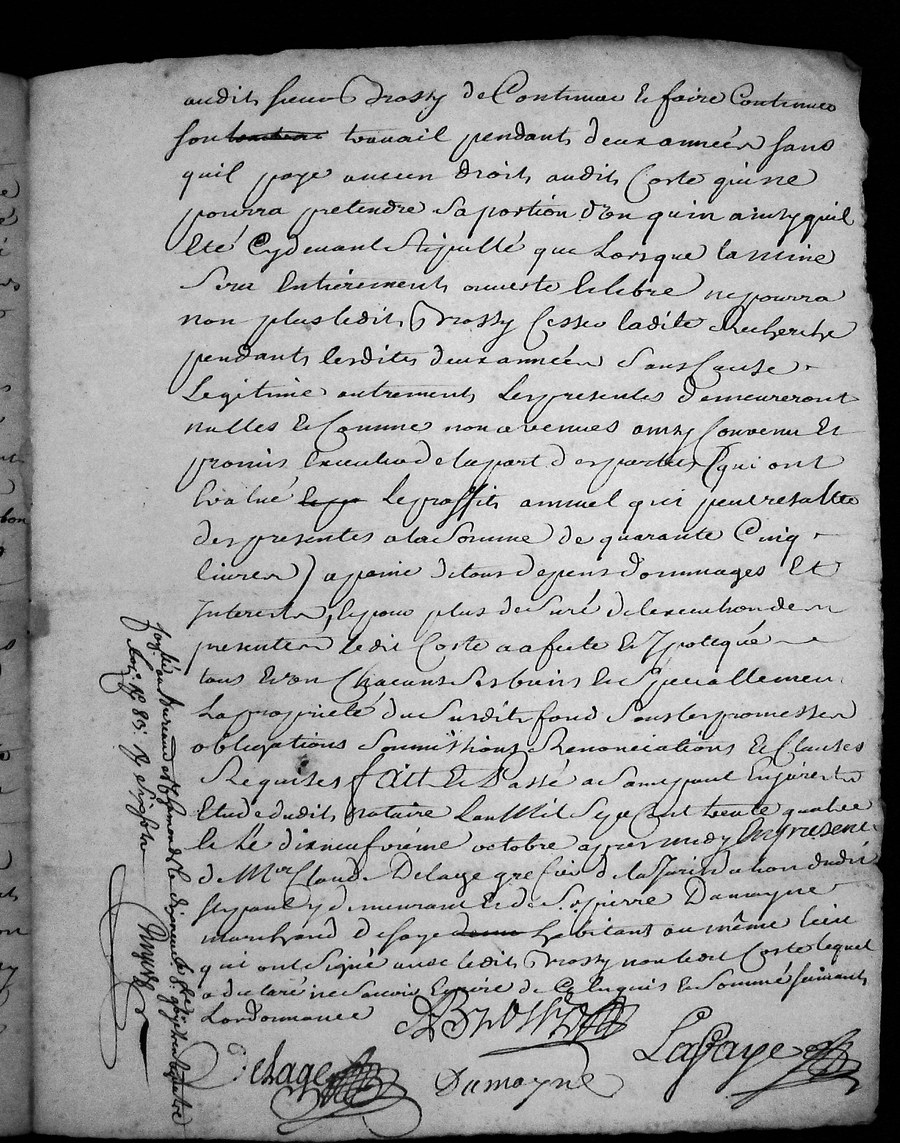 audit sieur Brossy de Continuer & faire Continuer
son travail pendant deux années sans
quil paye aucun droit audit Coste qui ne
pourra pretendre sa portion d'on quin ainsy quil
Eté Cydevant stipullé que Lorsque la mine
sera Entierement ouverte & libre ne pourra
non plus ledit Brossy Cesser ladite Recherche
pendant lesdites deux années sans Cause
Legitime autrement Les presentes demeureront
nulles & Comme non avenues ainsy Convenu Et
promis Executer de la part des parties (qui ont
Evalué Le proffit annuel qui peut resulter
des presentes a la somme de quarante Cinq
livres) a paine de tous depens dommages Et
Interest, & pour plus de sureté de lexecution des
presentes ledit Coste a afecté & Ypotequé
tous & un Chacuns ses biens & specialement
La proprieté du susdit fond sous les promesses
obligations soumissions Renonciations & Clauses
Requises fait Et Passé a
Etude dudit notaire Lan Mil sept Cent trente quatre
& le dixneufvieme octobre apres midy En presence
de Mre Claude Delage grefier de la Jurisdiction dudit
St paul y demeurant & de Sr pierre Damayne
marchand de soye habitant au même lieu
qui ont signé avec ledit Brossy non ledit Coste lequel
a declaré ne scavoir Ecrire de Ce Enquis & sommé suivant
Lordonnance
Brossy
Delage
Damayne
Lafaye